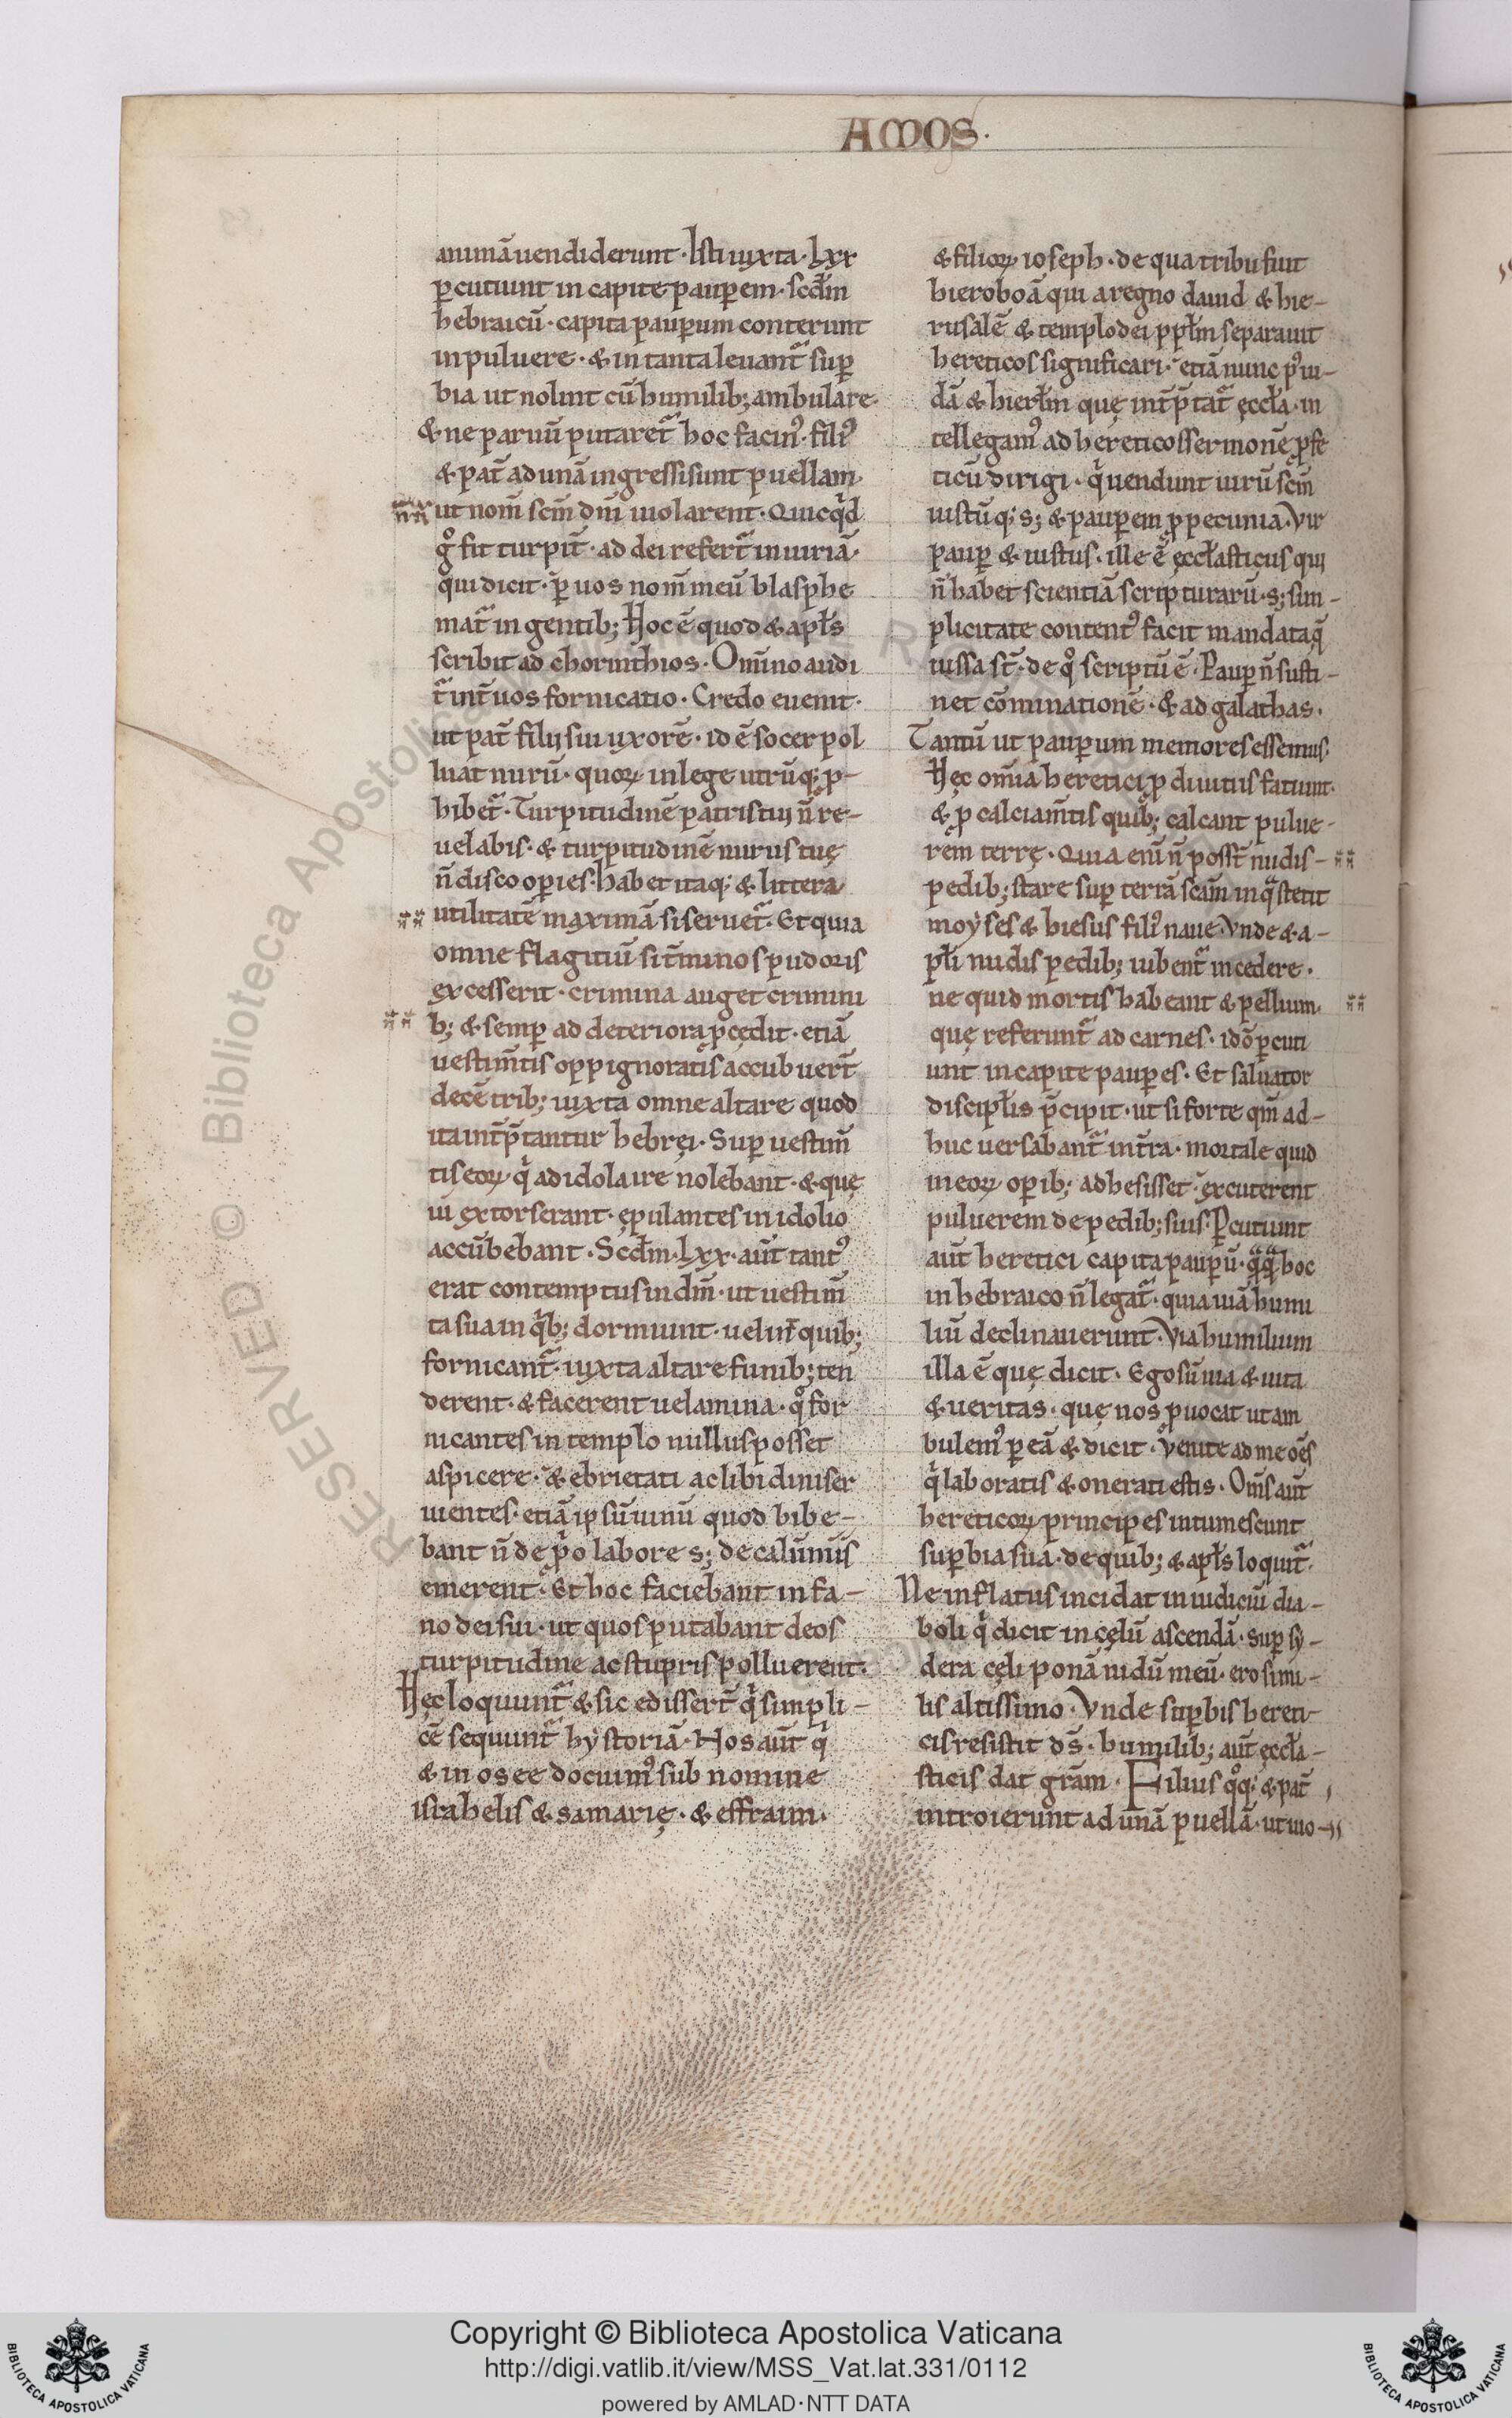 AMOS·
animā uendiderunt· Isti iuxta· lxx
ꝑcutiunt in capite pauꝑem· scd̄m
hebraicū· capita pauꝑum conterunt
in puluere· & in tanta leuant᷑ suꝑ
bia ut nolint cū humilib; ambulare·
& ne paruū putaret᷑ hoc facin᷒· fili᷒
& pat̄ ad unā ingressi sunt puellam·
ut nom̄ scm̄ dn̄i uiolarent· Quicqͥd
gͦ fit turpit̄· ad dei refert᷑ iniuriā·
qui dicit· ꝑ uos nom̄ meū blasphe
mat᷑ in gentib; Hoc ē quod & apłs
scribit ad chorinthios· Om̄ino audi
t᷑ int̄ uos fornicatio· Credo euenit·
ut pat̄ filij sui uxorē· id ē socer pol
luat nurū· quoꝝ in lege utrūq; ꝓ-
hibet᷑· Turpitudinē patris tui n̄ re-
uelabis· & turpitudinē nurus tuę
n̄ discooꝑies· habet itaq; & littera
utilitatē maximā si seruet᷑· Et quia
omne flagitiū si t̄minos pudoris
excesserit· crimina auget crimini
b; & semꝑ ad deteriora ꝓcedit· etiā
uestim̄tis oppignoratis accubuer̄t
decē trib; iuxta omne altare quod
ita int̄p̄tantur hebrei· Suꝑ uestim̄
tis eoꝝ qͥ ad idola ire nolebant· & que
ui extorserant· epulantes in idolio
accūbebant· Scd̄m· lxx· aut̄ tant᷒
erat contemptus in dm̄· ut uestim̄
ta sua in qͥb; dormiunt· uel int̄ quib;
fornicant᷑· iuxta altare funib; ten
derent· & facerent uelamina· qͦ for
nicantes in templo nullus posset
aspicere· & ebrietati ac libidini ser
uientes· etiā ipsū uinū quod bibe-
bant n̄ de pͥo labore s; de calūniis
emerent· Et hoc faciebant in fa-
no dei sui· ut quos putabant deos
turpitudine ac stupris polluerent·
Hęc loquunt᷑ & sic edissert̄ qͥ simpli-
cē sequunt᷑ hystoriā· Nos aut̄ qͥ
& in osee docuim᷒ sub nomine
israhelis & samarię· & effraim·
& filioꝝ ioseph· de qua tribu fuit
hieroboā qui a regno dauid & hie-
rusalē & templo dei ppłm separauit
hereticos significari· etiā nunc p᷒ iu-
dā & hierłm quę int̄p̄tat᷑ ęccła· in
tellegam᷒ ad hereticos sermonē ꝓfe
ticū dirigi· qͥ uendunt uirū scm̄
iustūq; s; & pauꝑem ꝓ pecunia· Vir
pauꝑ & iustus· ille ē ęccłasticus qui
n̄ habet scientiā scripturarū· s; sim-
plicitate content᷒ facit mandata q̄
iussa st̄· de qͦ scriptū ē· Pauꝑ n̄ susti-
net cōminationē· & ad galathas·
Tantū ut pauꝑum memores essemus·
Hęc om̄ia heretici ꝓ diuitiis faciunt·
& ꝓ calciam̄tis quib; calcant pulue-
rem terrę· Quia eni̅ n̄ posst̄ nudis-
pedib; stare suꝑ terrā scam̄ in qͣ stetit
moyses & hiesus fili᷒ naue· Vnde & a-
płi nudis pedib; iubent᷑ incedere·
ne quid mortis habeant & pellium·
quę referunt᷑ ad carnes· idō ꝑcuti
unt in capite pauꝑes· Et saluator
discipłis p̄cipit· ut si forte qm̄ ad-
huc uersabant᷑ in t̄ra· mortale quid
in eoꝝ oꝑib; adhesisset· excuterent
puluerem de pedib; suis· Ꝑcutiunt
aut̄ heretici capita pauꝑū· qͣqͣ hoc
in hebraico n̄ legat᷑· quia uiā humi
liū declinauerunt· Via humilium
illa ē quę dicit· Ego sū uia & uita
& ueritas· quę nos ꝓuocat ut am
bulem᷒ ꝑ eā & dicit· Venite ad me oēs
qͥ laboratis & onerati estis· Om̄s aut̄
hereticoꝝ principes intumescunt
suꝑbia sua· de quib; & apłs loquit᷑·
Ne inflatus incidat in iudiciū dia-
boli qͥ dicit in cęlū ascendā· suꝑ sy-
dera cęli ponā nidū meū· ero simi-
lis altissimo· Vnde suꝑbis hereti-
cis resistit ds̄· humilib; aut̄ ęccła-
sticis dat gr̄am· Filius qͦq; & pat̄
introierunt ad unā puellā· ut uio-
Copyright © Biblioteca Apostolica Vaticana
http://digi.vatlib.it/view/MSS_Vat.lat.331/0112
powered by AMLAD·NTT DATA
BIBLIOTECA APOSTOLICA VATICANA
BIBLIOTECA APOSTOLICA VATICANA